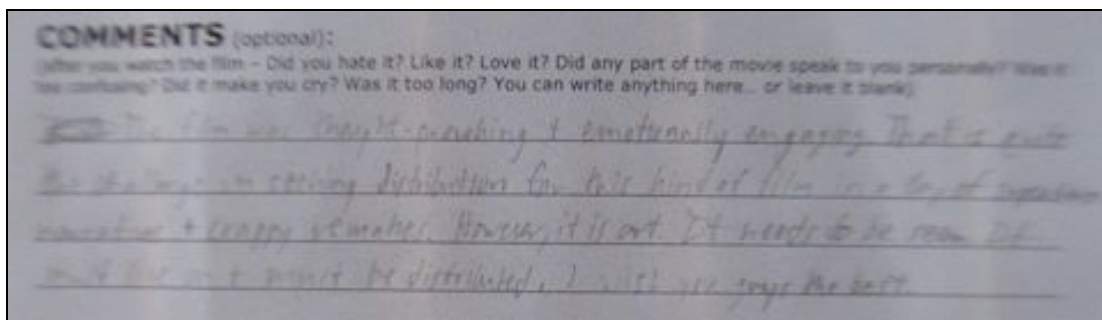 COMMENTS (optional):
(After you watch the film – Did you hate it? Like it? Love it? Did any part of the movie speak to you personally? Was it
too confusing? Did it make you cry? Was it too long? You can write anything here... or leave it blank)
The film was thought-provoking + emotionally engaging That is quite
the challenge in getting distribution for this kind of film in a day of
+ crappy remakes. However, it is art. It needs to be seen It
must be distributed. I wish you guys the best.